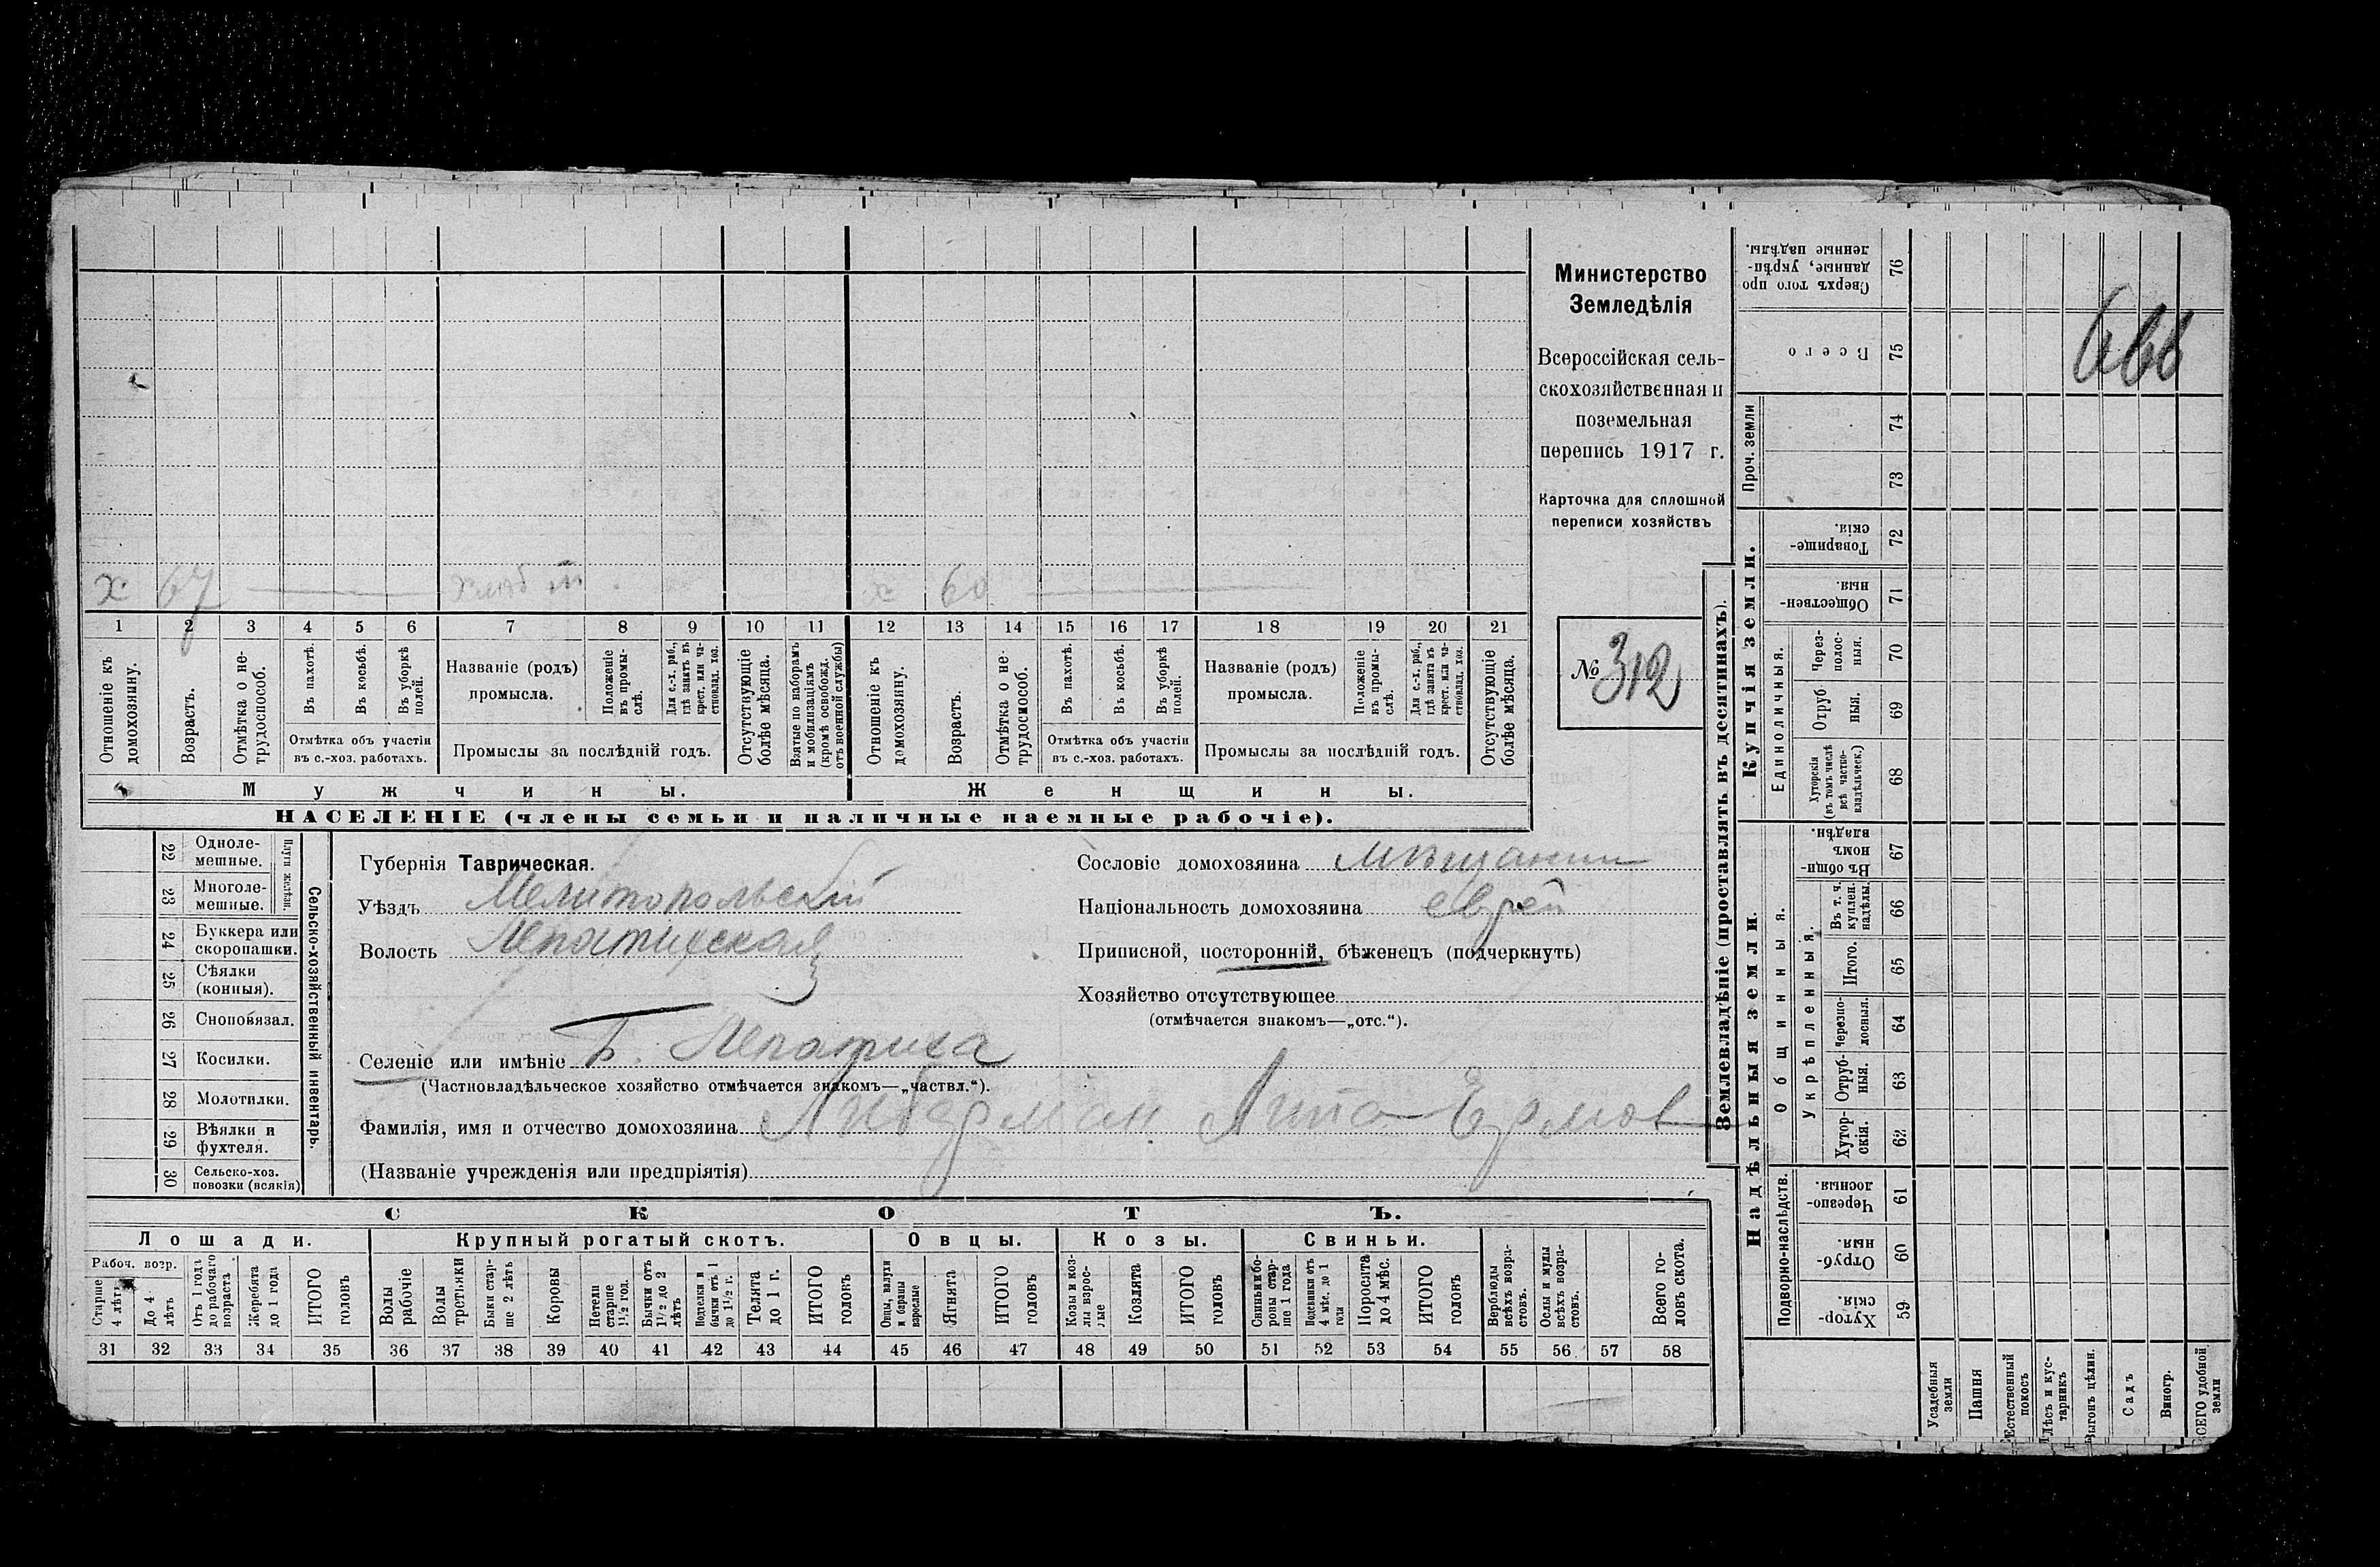 х 67 хлѣб т. х 60
1 2 3 4 5 6 7 8 9 10 11 12 13 14 15 16 17 18 19 20 21
Отношеніе къ домохозяину.
Возрастъ.
Отмѣтка о не-трудоспособ.
Въ пахотѣ.
Въ косьбѣ.
Въ уборкѣ полей.
Отмѣтка объ участіи
въ с.-хоз. работахъ.
Названіе (родъ)
промысла.
Положеніе въ промы-слѣ.
Для с.-х. раб., гдѣ занятъ въ крест. или ча-стновлад. хоз.
Промыслы за послѣдній годъ.
Отсутствующіе болѣе мѣсяца.
Взятые по наборамъ и мобилизаціямъ (кромѣ освобожд. отъ военной службы)
Отношеніе къ домохозяину.
Возрастъ.
Отмѣтка о не-трудоспособ.
Въ пахотѣ.
Въ косьбѣ.
Въ уборкѣ полей.
Отмѣтка объ участіи
въ с.-хоз. работахъ.
Названіе (родъ)
промысла.
Положеніе въ промы-слѣ.
Для с.-х. раб., гдѣ занята въ крест. или ча-стновлад. хоз.
Промыслы за послѣдній годъ.
Отсутствующіе болѣе мѣсяца.
Мужчины. Женщины.
НАСЕЛЕНІЕ (члены семьи и наличные наемные рабочіе).
Министерство
Земледѣлія
Всероссійская сель-
скохозяйственная и
поземельная
перепись 1917 г.
Карточка для сплошной
переписи хозяйствъ
№ 312
Сельско-хозяйственный инвентарь.
Плуги желѣзн.
22 Одноле-мешные.
23 Многоле-мешные.
24 Буккера или скоропашки.
25 Сѣялки (конныя).
26 Сноповязал.
27 Косилки.
28 Молотилки.
29 Вѣялки и фухтеля.
30 Сельско-хоз. повозки (всякія)
Губернія Таврическая.
Уѣздъ Мелитопольскій
Волость Лепатихская
Селеніе или имѣніе Б. Лепатиха
(Частновладѣльческое хозяйство отмѣчается знакомъ—„частвл.“).
Фамилія, имя и отчество домохозяина Либерман Лита Ермов
(Названіе учрежденія или предпріятія)
Сословіе домохозяина мѣщанин
Національность домохозяина еврей
Приписной, посторонній, бѣженецъ (подчеркнуть)
Хозяйство отсутствующее
(отмѣчается знакомъ—„отс.“).
СКОТЪ.
Лошади. Крупный рогатый скотъ. Овцы. Козы. Свиньи.
Рабоч. возр.
Старше 4 лѣтъ
До 4 лѣтъ
Отъ 1 года до рабочаго возраста
Жеребята до 1 года
ИТОГО головъ
Волы рабочіе
Волы третьяки
Быки стар-ше 2 лѣтъ
Коровы
Нетели старше 1½ год.
Бычки отъ 1½ до 2 лѣтъ
Подтелки и бычки отъ 1 до 1½ г.
Телята до 1 г.
ИТОГО головъ
Овцы, валухи и бараны взрослые
Ягнята
ИТОГО головъ
Козы и коз-лы взрос-лые
Козлята
ИТОГО головъ
Свиньи и бо-ровы стар-ше 1 года
Подсвинки отъ 4 мѣс. до 1 года
Поросята до 4 мѣс.
ИТОГО головъ
Верблюды всѣхъ возра-стовъ.
Ослы и мулы всѣхъ возра-стовъ.
Всего го-ловъ скота.
31 32 33 34 35 36 37 38 39 40 41 42 43 44 45 46 47 48 49 50 51 52 53 54 55 56 57 58
Землевладѣніе (проставлять въ десятинахъ).
Купчія земли.
Надѣльныя земли.
76 Сверхъ того про-данные, укрѣп-ленные надѣлы.
75 Всего
Проч. земли
74
73
72 Товарище-скія.
71 Обществен-ныя.
Единоличныя.
70 Через-полос-ныя.
69 Отруб-ныя.
68 Хуторскія (въ томъ числѣ всѣ частно-владѣльческ.)
Общинныя.
67 Въ общи-номъ владѣн.
Укрѣпленныя.
66 Въ т. ч. куплен. надѣлы.
65 Итого.
64 Черезпо-лосныя.
63 Отруб-ныя.
62 Хутор-скія.
Подворно-наслѣдств.
61 Черезпо-лосныя.
60 Отруб-ныя.
59 Хутор-скія.
Усадебныя земли
Пашня
Естественный покосъ
Лѣсъ и кус-тарникъ
Выгонъ цѣлин.
Садъ
Виногр.
ВСЕГО удобной земли